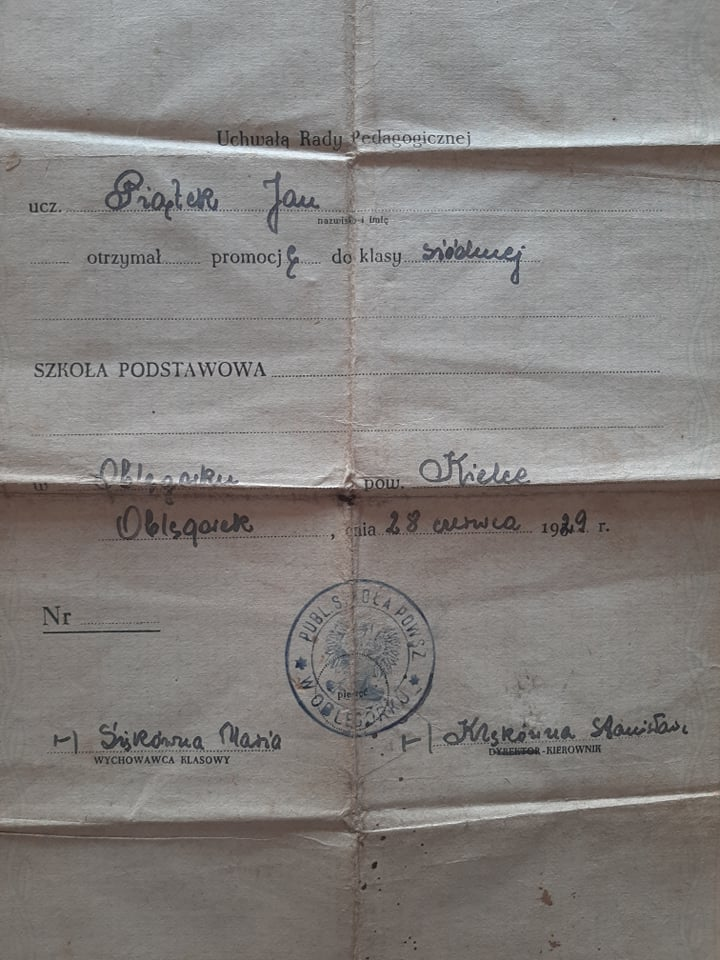 Uchwałą Rady Pedagogicznej
ucz. Piątek Jan
nazwisko i imię
otrzymał promocję do klasy siódmej
SZKOŁA PODSTAWOWA
w Oblęgorku pow. Kielce
Oblęgorek, dnia 28 czerwca 19 r.
Nr
PUBL. SZKOŁA POWSZ.
W OBLĘGORKU
pieczęć
Maria Stanisława
WYCHOWAWCA KLASOWY DYREKTOR-KIEROWNIK